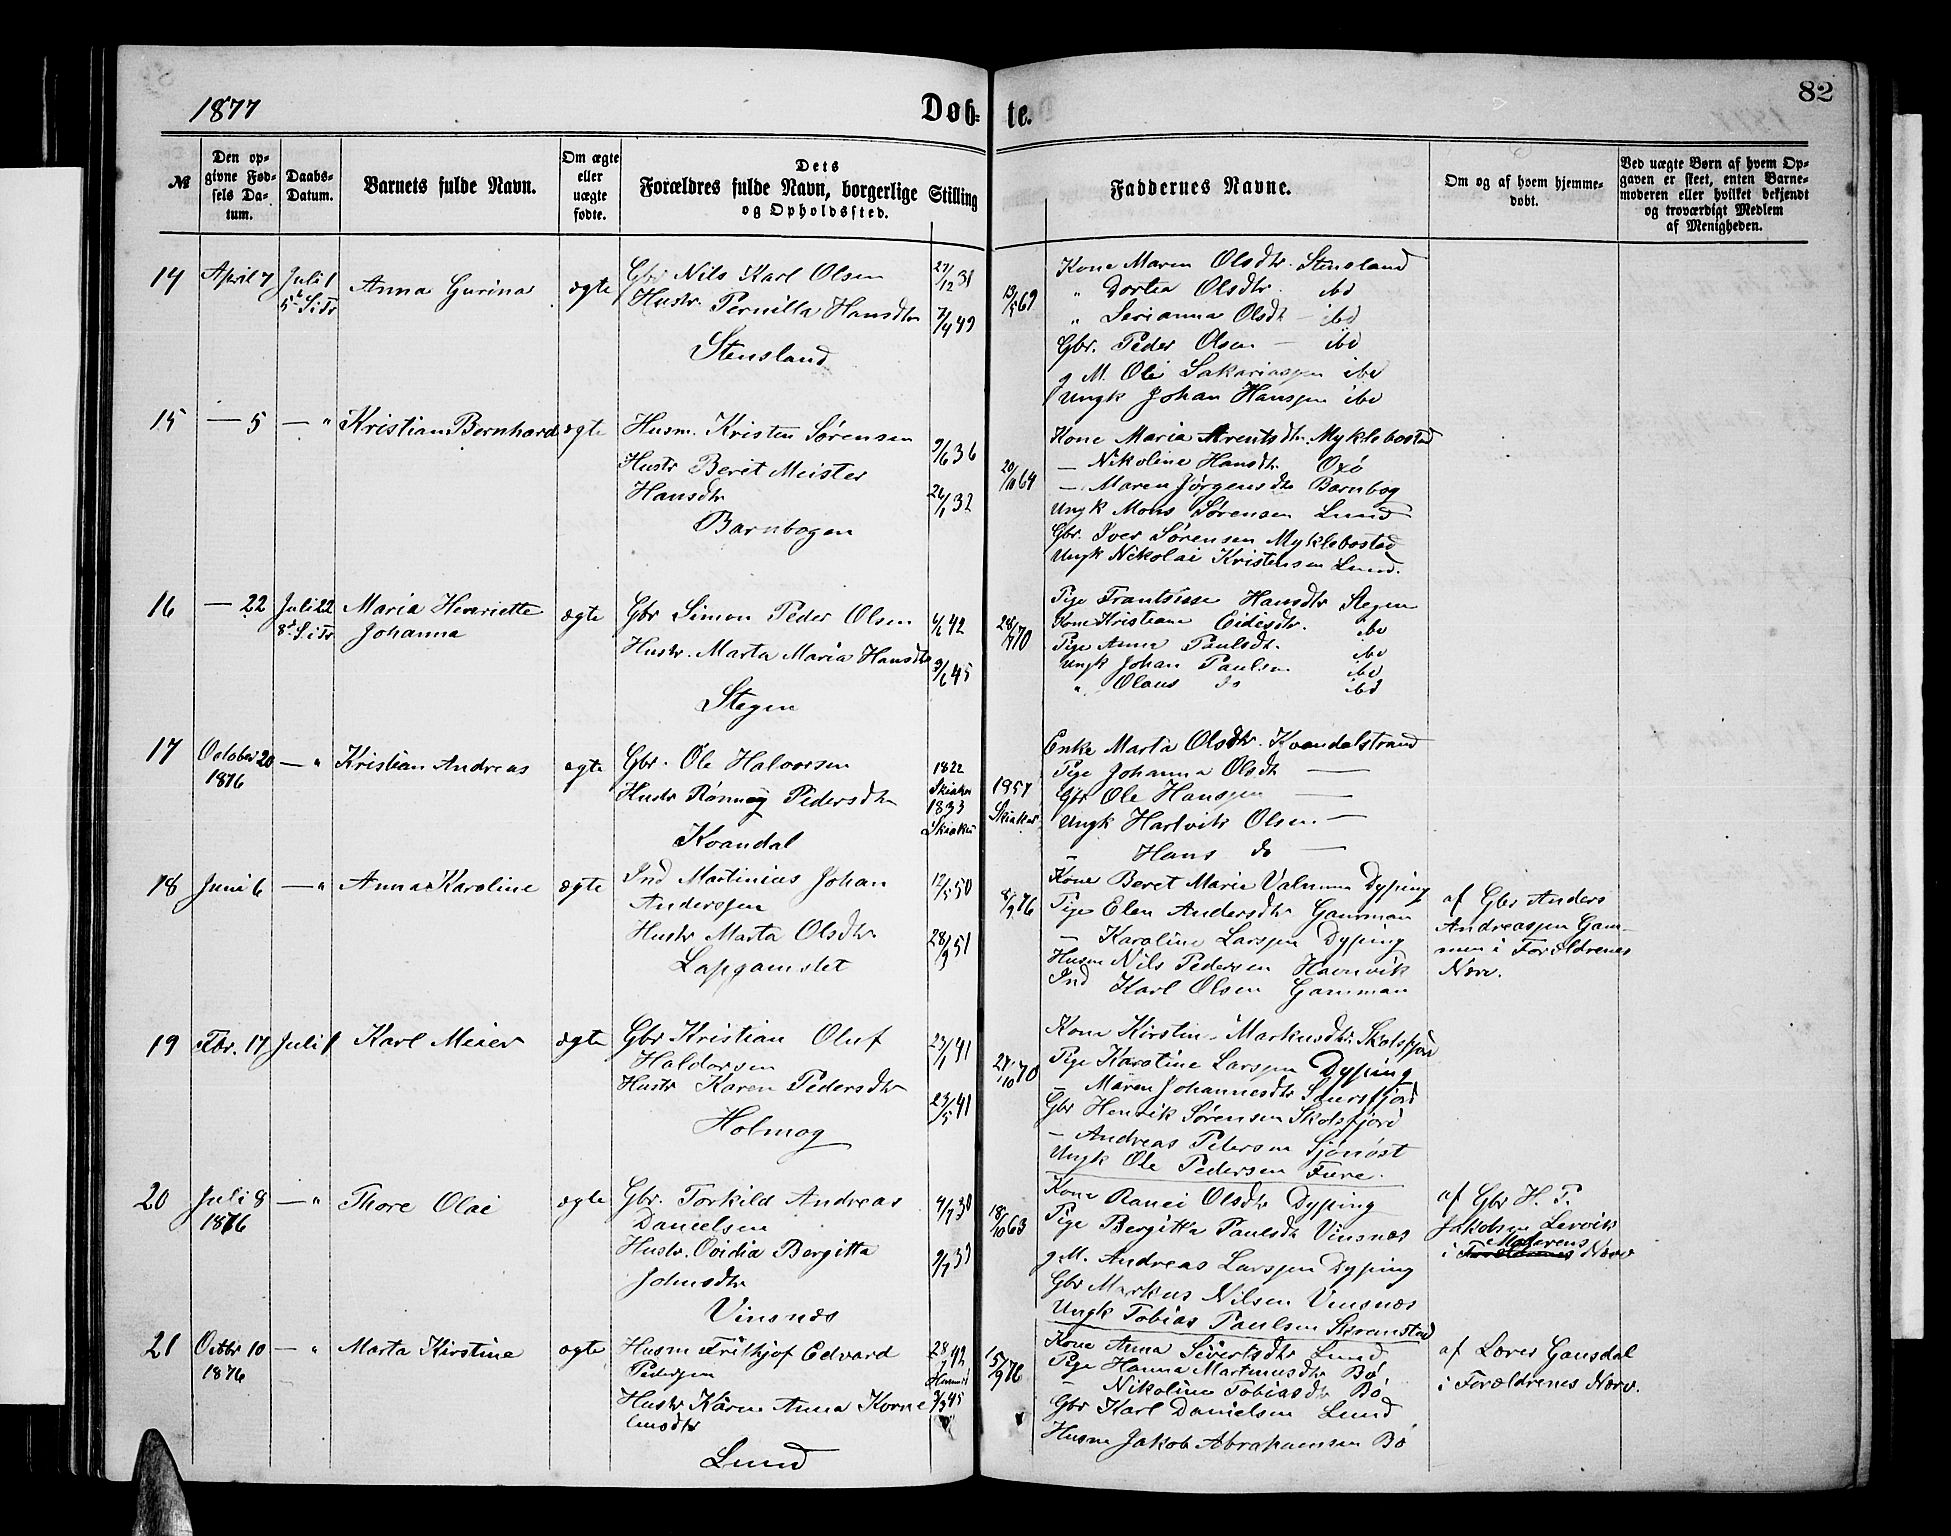 1877
Døb-
te.
82
№
Den op-
givne Fød-
sels Da-
tum.
Daabs-
Datum.
Barnets fulde Navn.
Om ægte
eller
uægte
fødte.
Dets
Forældres fulde Navn, borgerlige Stilling
og Opholdssted.
Faddernes Navne.
Om og af hvem hjemme-
døbt.
Ved uægte Børn af hvem Op-
gaven er skeet, enten Barne-
moderen eller hvilket bekjendt
og troværdigt Medlem
af Menigheden.
14
April 7
Juli 1
5t S. i Tr
Anna Gurina
ægte
Gbr Nils Karl Olsen
Hustr. Pernilla Hansdtr
Stensland
27/12 31
7/4 49
13/5 69
Kone Maren Olsdtr. Stensland
" Dortea Olsdtr. ibd
" Serianna Olsdtr - ibd
Gbr. Peder Olsen - ibd
g M. Ole Sakariassen ibd
Ungk Johan Hanssen ibd
15
— 5
— "
Kristian Bernhard
ægte
Husm. Kristen Sørensen
Hustr Berit Meister
Hansdtr
Barnbogen
9/6 36
26/1 32
20/11 64
Kone Maria Arentsdtr. Myklebostad
— Nikoline Hansdtr Oxø
— Maren Jørgensdtr Barnbog
Ungk Mons Sørensen Lund
Gbr. Iver Sørensen Myklebostad
Ungk Nikolai Kristensen Lund.
16
— 22
Juli 22
8d S. i Tr
Maria Henriette
Johanna
ægte
Gbr Simon Peder Olsen
Hustr. Marta Maria Hansdtr
Stegen
4/6 42
9/6 45
28/7 70
Pige Frantsisse Hansdtr Stegen
Kone Kristiane Eidesdtr. ibd
Pige Anna Paulsdtr. ibd
Ungk Johan Paulsen ibd
" Olaus do ibd
17
October 20
1876
— "
Kristian Andreas
ægte
Gbr. Ole Halvorsen
Hustr Rønnøg Pedersdtr
Kvandal
1822
Skiaker
1833
Skiaker
1957
Skiaker
Enke Marta Olsdtr. Kvandalstrand
Pige Johanna Olsdtr —
Gbr Ole Hanssen —
Ungk Hartvik Olsen —
— Hans do —
18
Juni 6
— "
Anna Karoline
ægte
Ind Martinius Johan
Anderssen
Hustr Marta Olsdtr
Lapgamslet
12/5 50
28/9 51
8/9 76
Kone Beret Maria Valnum Dyping
Pige Elen Andersdtr Gamman
— Karoline Larssen Dyping
Husm Nils Pedersen Havnvik
Ind Karl Olsen Gamman
af Gbr Anders
Andreassen Gam-
men i Forældrenes
Nærv.
19
Fbr. 17
Juli 1
Karl Meier
ægte
Gbr Kristian Oluf
Haldorsen
Hustr Karen Pedersdtr
Holmog
23/1 41
23/5 41
27/10 70
Kone Kirstin Markusdtr: Skotsfjord
Pige Karoline Larssen Dyping
— Maren Johannesdtr Saursfjord
Gbr Henrik Sørensen Skotsfjord
— Andreas Petersen Sjønøst
Ungk Ole Pedersen Fure.
20
Juli 8
1876
— "
Thore Olai
ægte
Gbr. Torkild Andreas
Danielsen
Hustr. Ovidia Bergitta
Johnsdtr
Vinsnes
4/7 30
9/7 33
18/10 63
Kone Ranei Olsdtr Dyping
Pige Bergitta Paulsdtr Vinsnes
g M. Andreas Larssen Dyping
Gbr Markus Nilsen Vinsnes
Ungk Tobias Paulsen Skvenstad
af Gbr H. P.
Jakobsen Lervik
Moderens
i Forældrenes Nærv
21
Octbr 10
1876
— "
Marta Kirstine
ægte
Husm Frithjof Edvard
Pedersen
Hustr Karen Anna Korne-
liusdtr
Lund
28/7 42
9/3 45
15/9 76
Kone Anna Sivertsdtr Lund
Pige Hanna Martinusdtr Bø
— Nikoline Tobiasdtr Bø
Gbr Karl Danielsen Lund
Husm Jakob Abrahamsen Bø
af Lærer Gansdal
i Forældrenes Nærv.